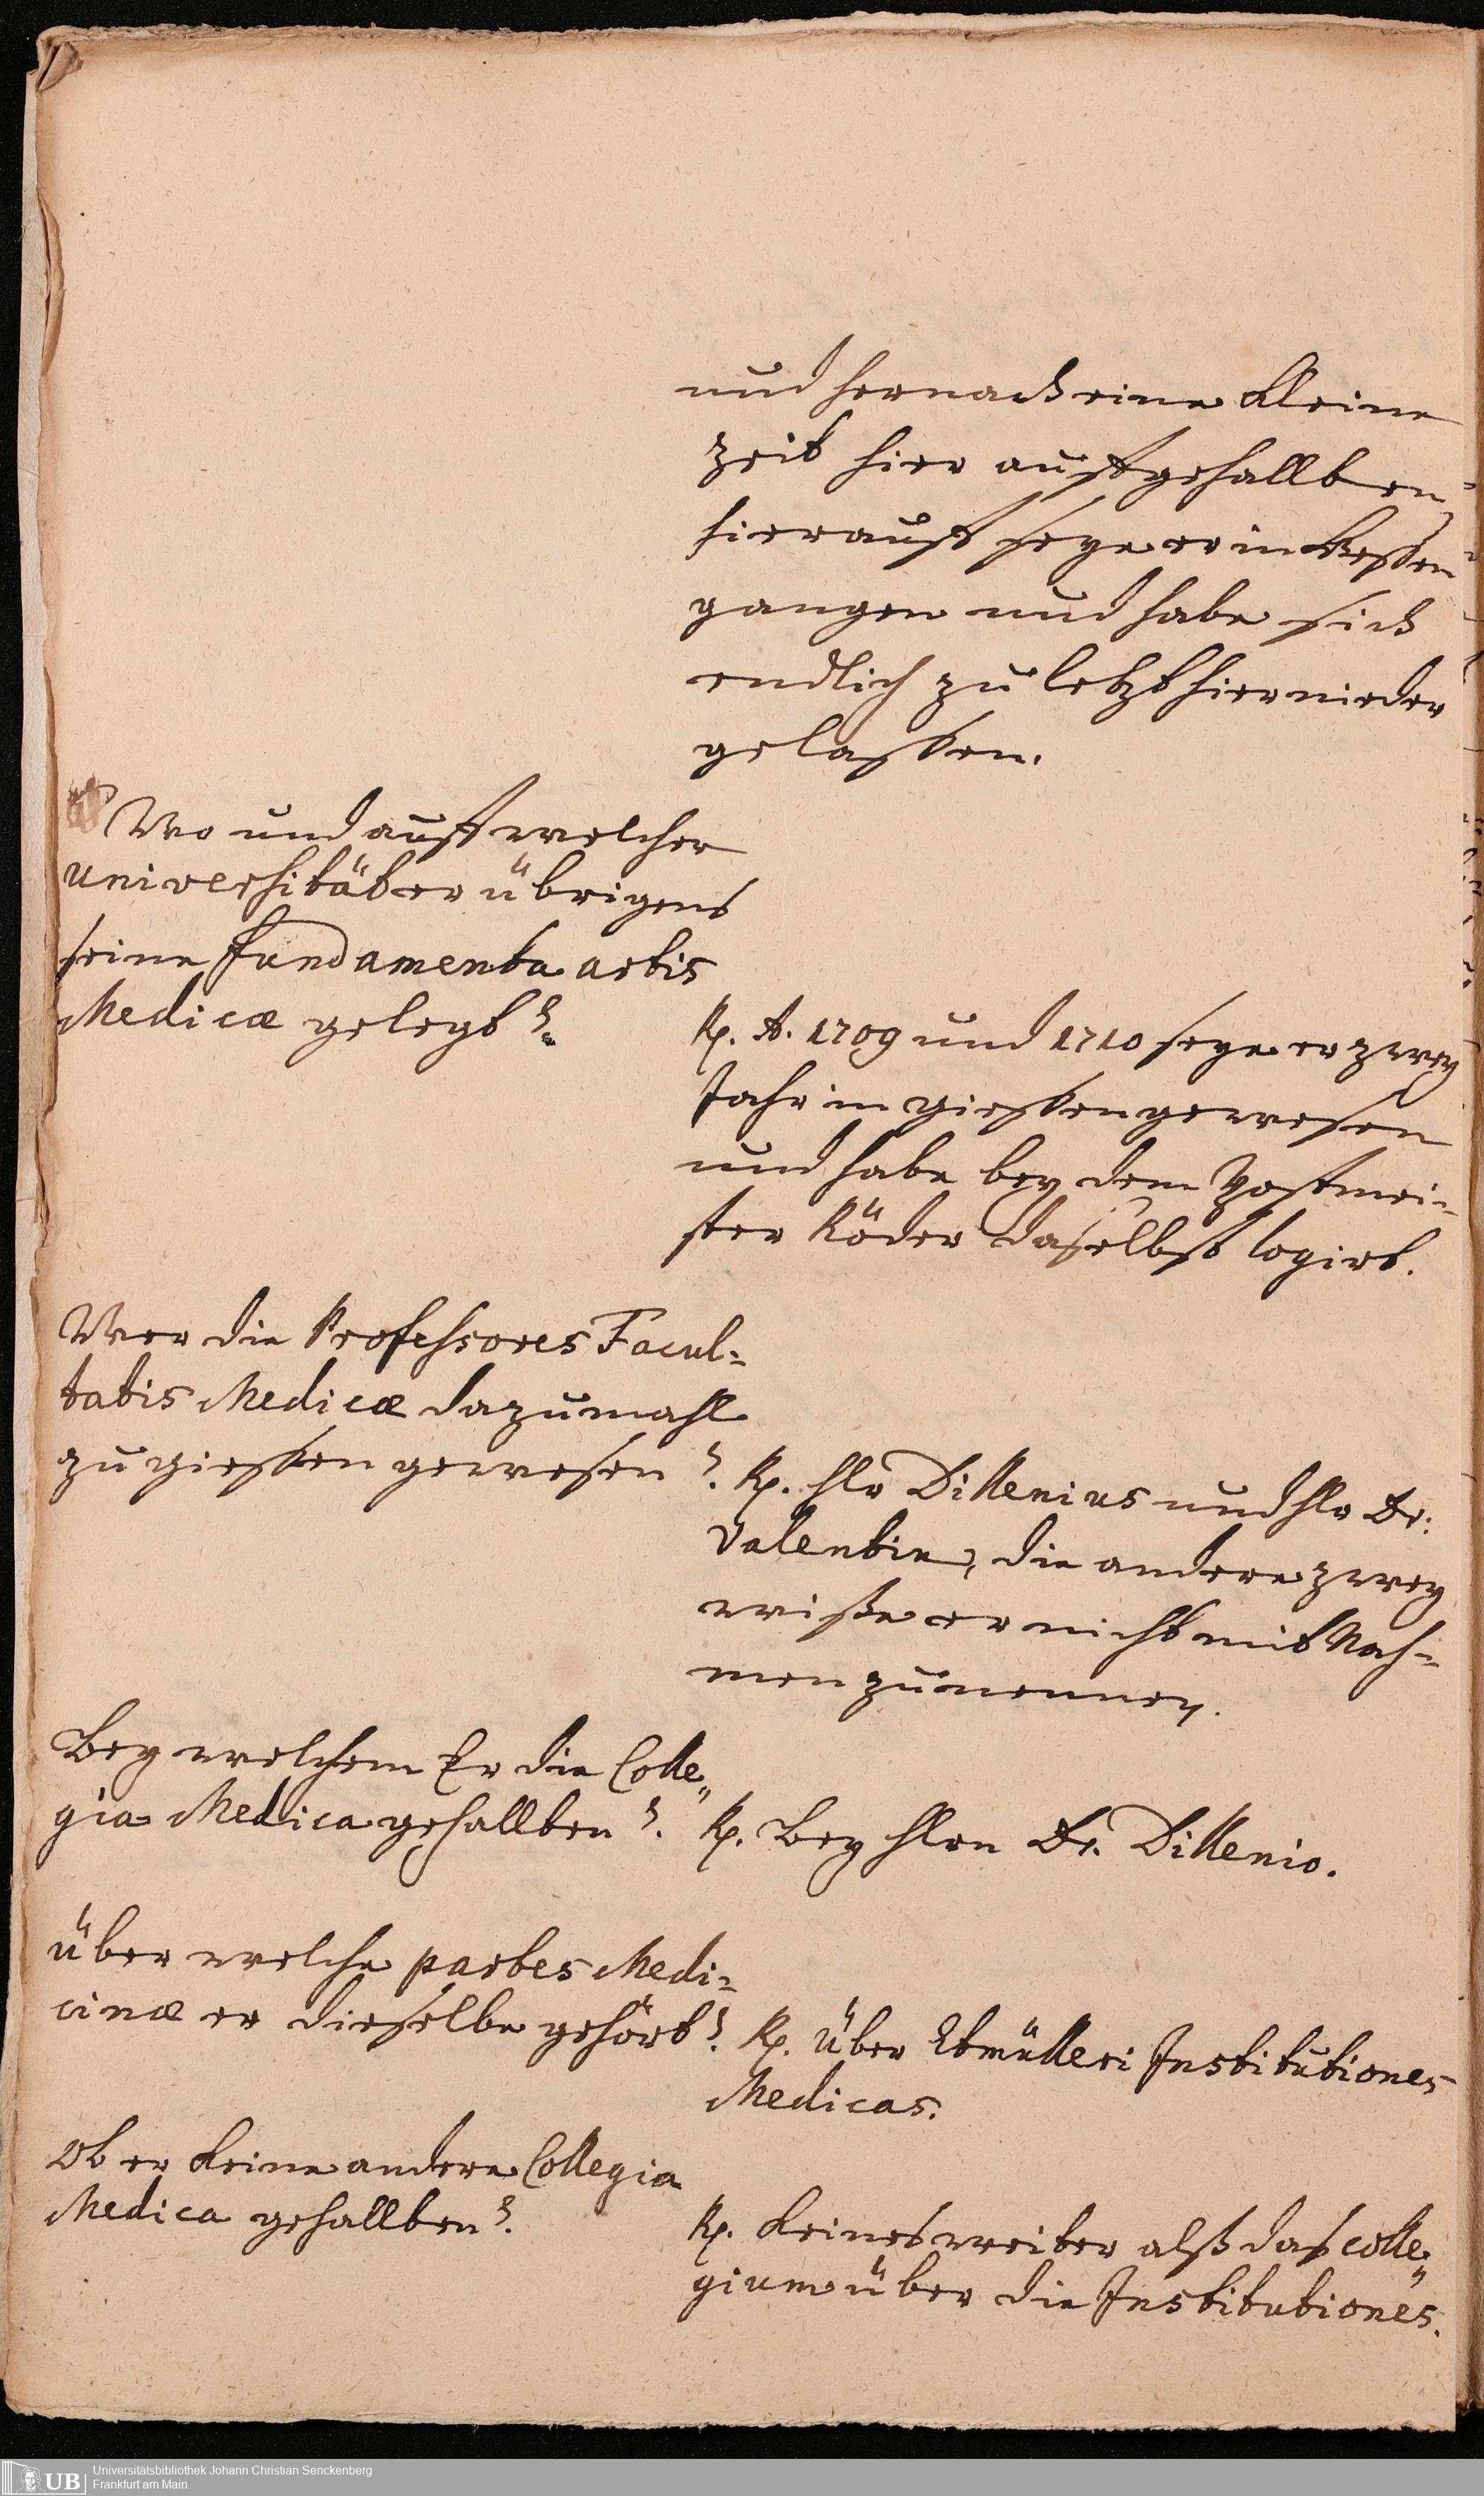 und hernach eine kleine
Zeit hier auffgehallten,
hierauff seye er in Hessen
gangen und habe sich
endlich zu letzt hier nieder
gelassen.
Wo und auff welcher
Universität er übrigens
seine fundamenta artis
Medicæ gelegt?
Rp. A. 1709 und 1710 seye er zwey
Jahr in Giessen gewesen
und habe bey dem Postmei-
ster Röder daselbst logirt.
Wer die Professores Facul-
tatis Medicæ dazumahl
zu Giessen gewesen?
Rp. Hr Dillenius und Hr Dr:
Valentin, die andere zwey
wiße er nicht mit Nah-
men zu nennen.
Bey welchem Er die Colle-
gia Medica gehallten?
Rp. Bey Hrn Dr. Dillenio.
Über welche partes Medi-
cinæ er dieselbe gehört?
Rp. Über Etmülleri Institutiones
Medicas.
Ob er keine andere Collegia
Medica gehallten?
Rp. Keines weiter alß das Colle-
gium über die Institutiones.
Universitätsbibliothek Johann Christian Senckenberg
UB Frankfurt am Main